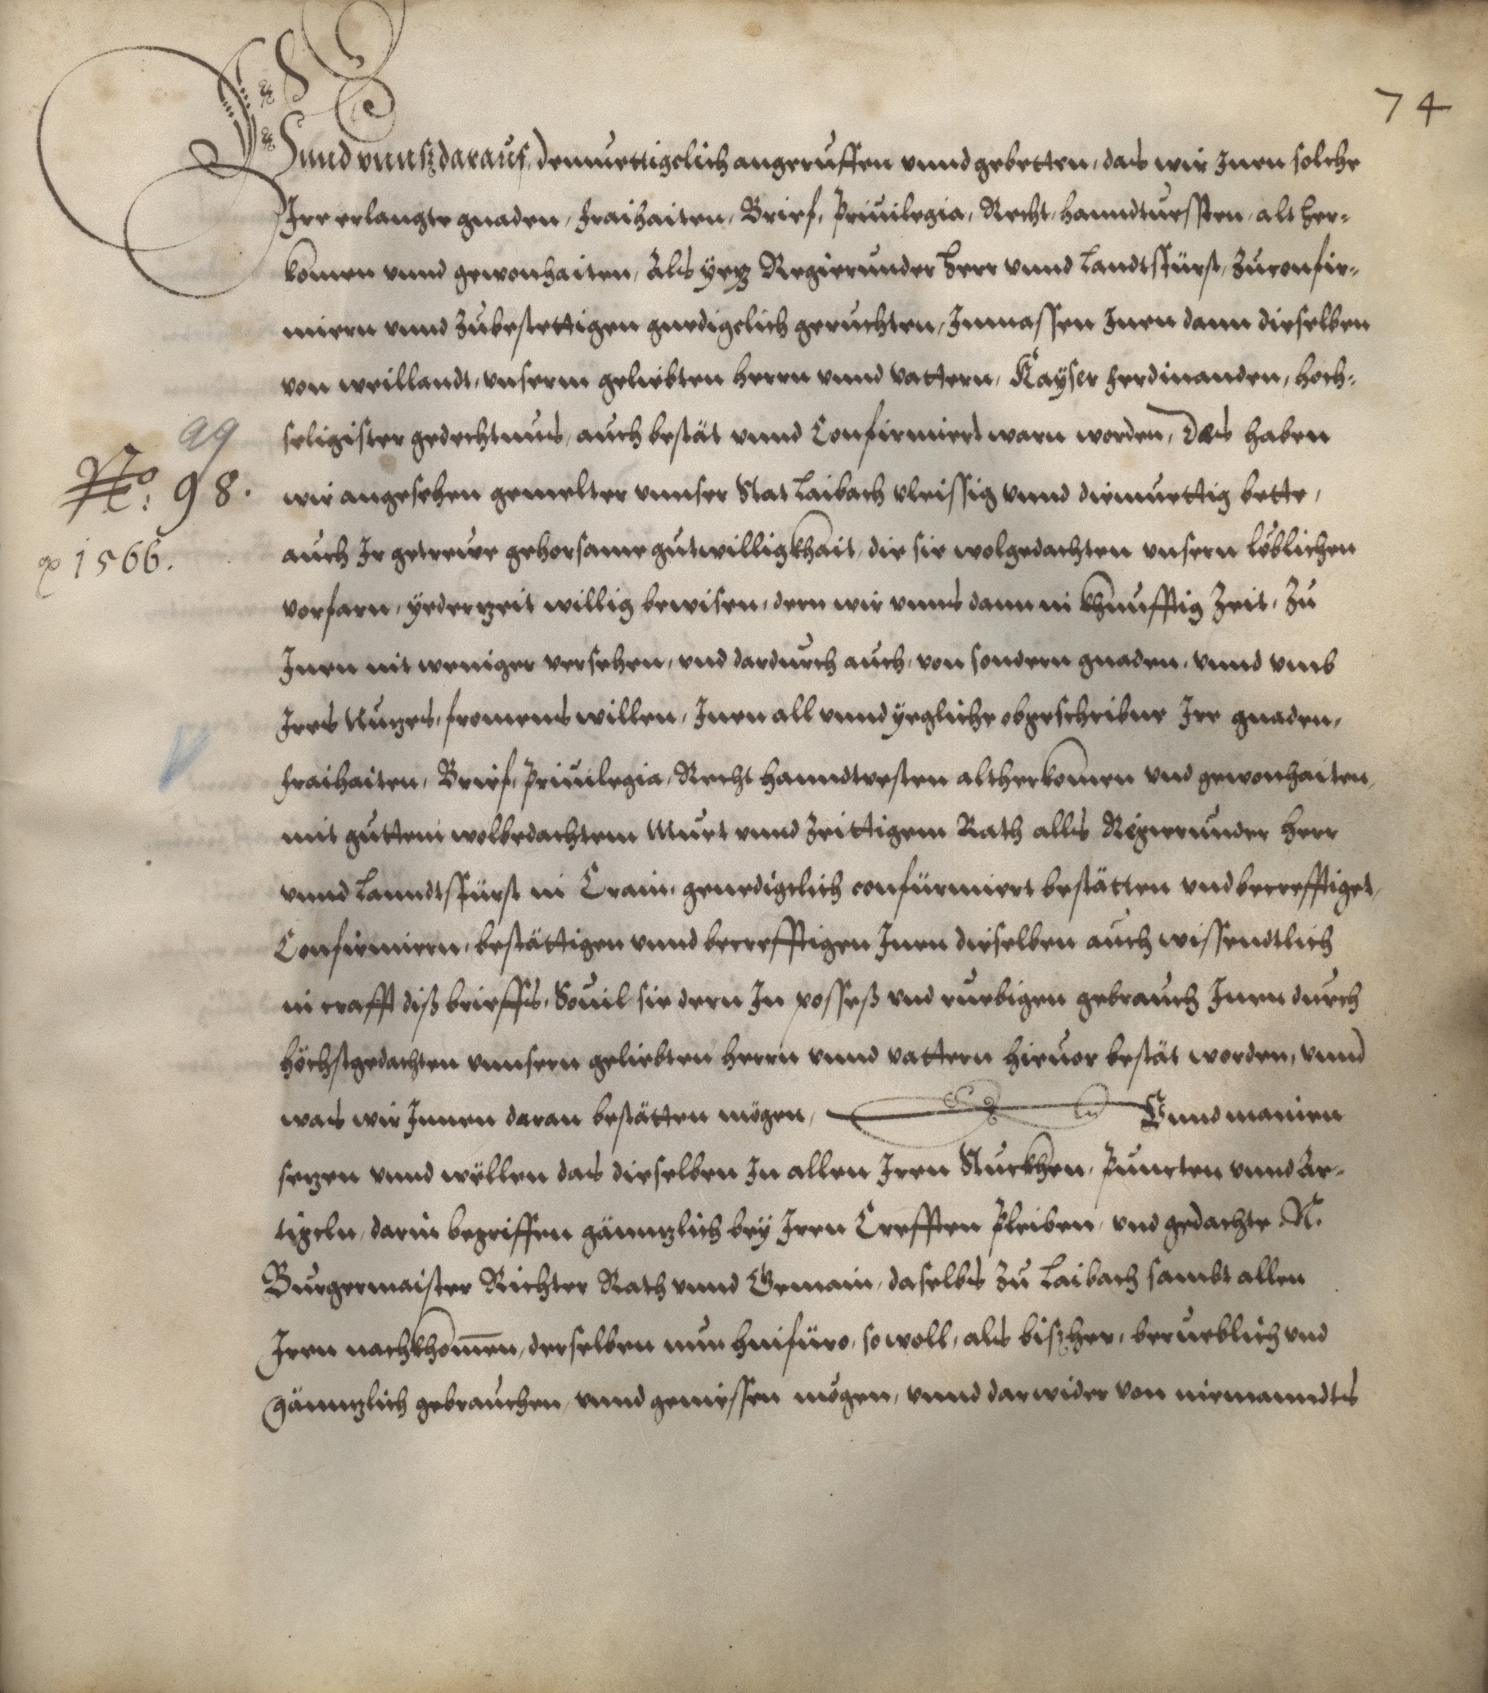 74
Vnnd vnnß daraus, demuettigclich angeruffen vnnd gebetten, das wir Inen solche
Ire erlangte gnaden, fraihaiten, Brief, Priuilegia, Recht, hanndtuessten, alt her-
komen vnnd gewonhaiten, Als yez Regierunder herr vnnd Landtsfürst, zu confir-
miern vnnd zubestettigen gnedigclich geruchten, Inmassen Inen dann dieselben
von weillandt, vnserm geliebten herrn vnnd vattern, Kayser ferdinanden, hoch-
seligister gedechtnus, auch bestät vnnd Confirmiert warn worden, Das haben
99
No: 98.
wir angesehen gemelter vnnser Stat Laibach vleissig vnnd diemuettig bette,
auch Ir getrewe gehorsame gutwilligkhait, die sie wolgedachten vnsern löblichen
1566.
vorfarn, yederzeit willig bewisen, dern wir vnns dann in khunfftig Zeit, zu
Inen nit weniger versehen, vnd dardurch auch, von sondern gnaden, vnnd vmb
Ires Nuzes, fromens willen, Inen all vnnd yegliche obgeschribne Ire gnaden,
V
fraihaiten, Brief, Priuilegia, Recht hanndtvesten altherkomen vnd gewonhaiten,
mit guttem wolbedachtem Muet vnnd zeittigem Rath alls Regierunder herr
vnnd Lanndtsfürst in Crain, genedigclich confürmiert bestätten vnd becrefftiget,
Confirmiern, bestättigen vnnd becrefftigen Inen dieselben auch wissendtlich
in crafft diß brieffs, Souil sie dern In possess vnd ruebigen gebrauch Inen durch
höchstgedachten vnnsern geliebten herrn vnnd vattern hieuor bestät worden, vnnd
was wir Innen daran bestätten mögen, Vnnd mainen
sezen vnnd wellen das dieselben In allen Iren Stuckhen, Puncten vnnd Ar-
ticeln, darin begriffen gännzlich bey Iren Crefften Pleiben, vnd gedachte N.
Burgermaister Richter Rath vnnd Gemain, daselbs zu Laibach sambt allen
Iren nachkhomen, derselben nun hinfüro, sowoll, als bißher, berueblich vnd
gännzlich gebrauchen, vnnd geniessen mögen, vnnd darwider von niemanndts